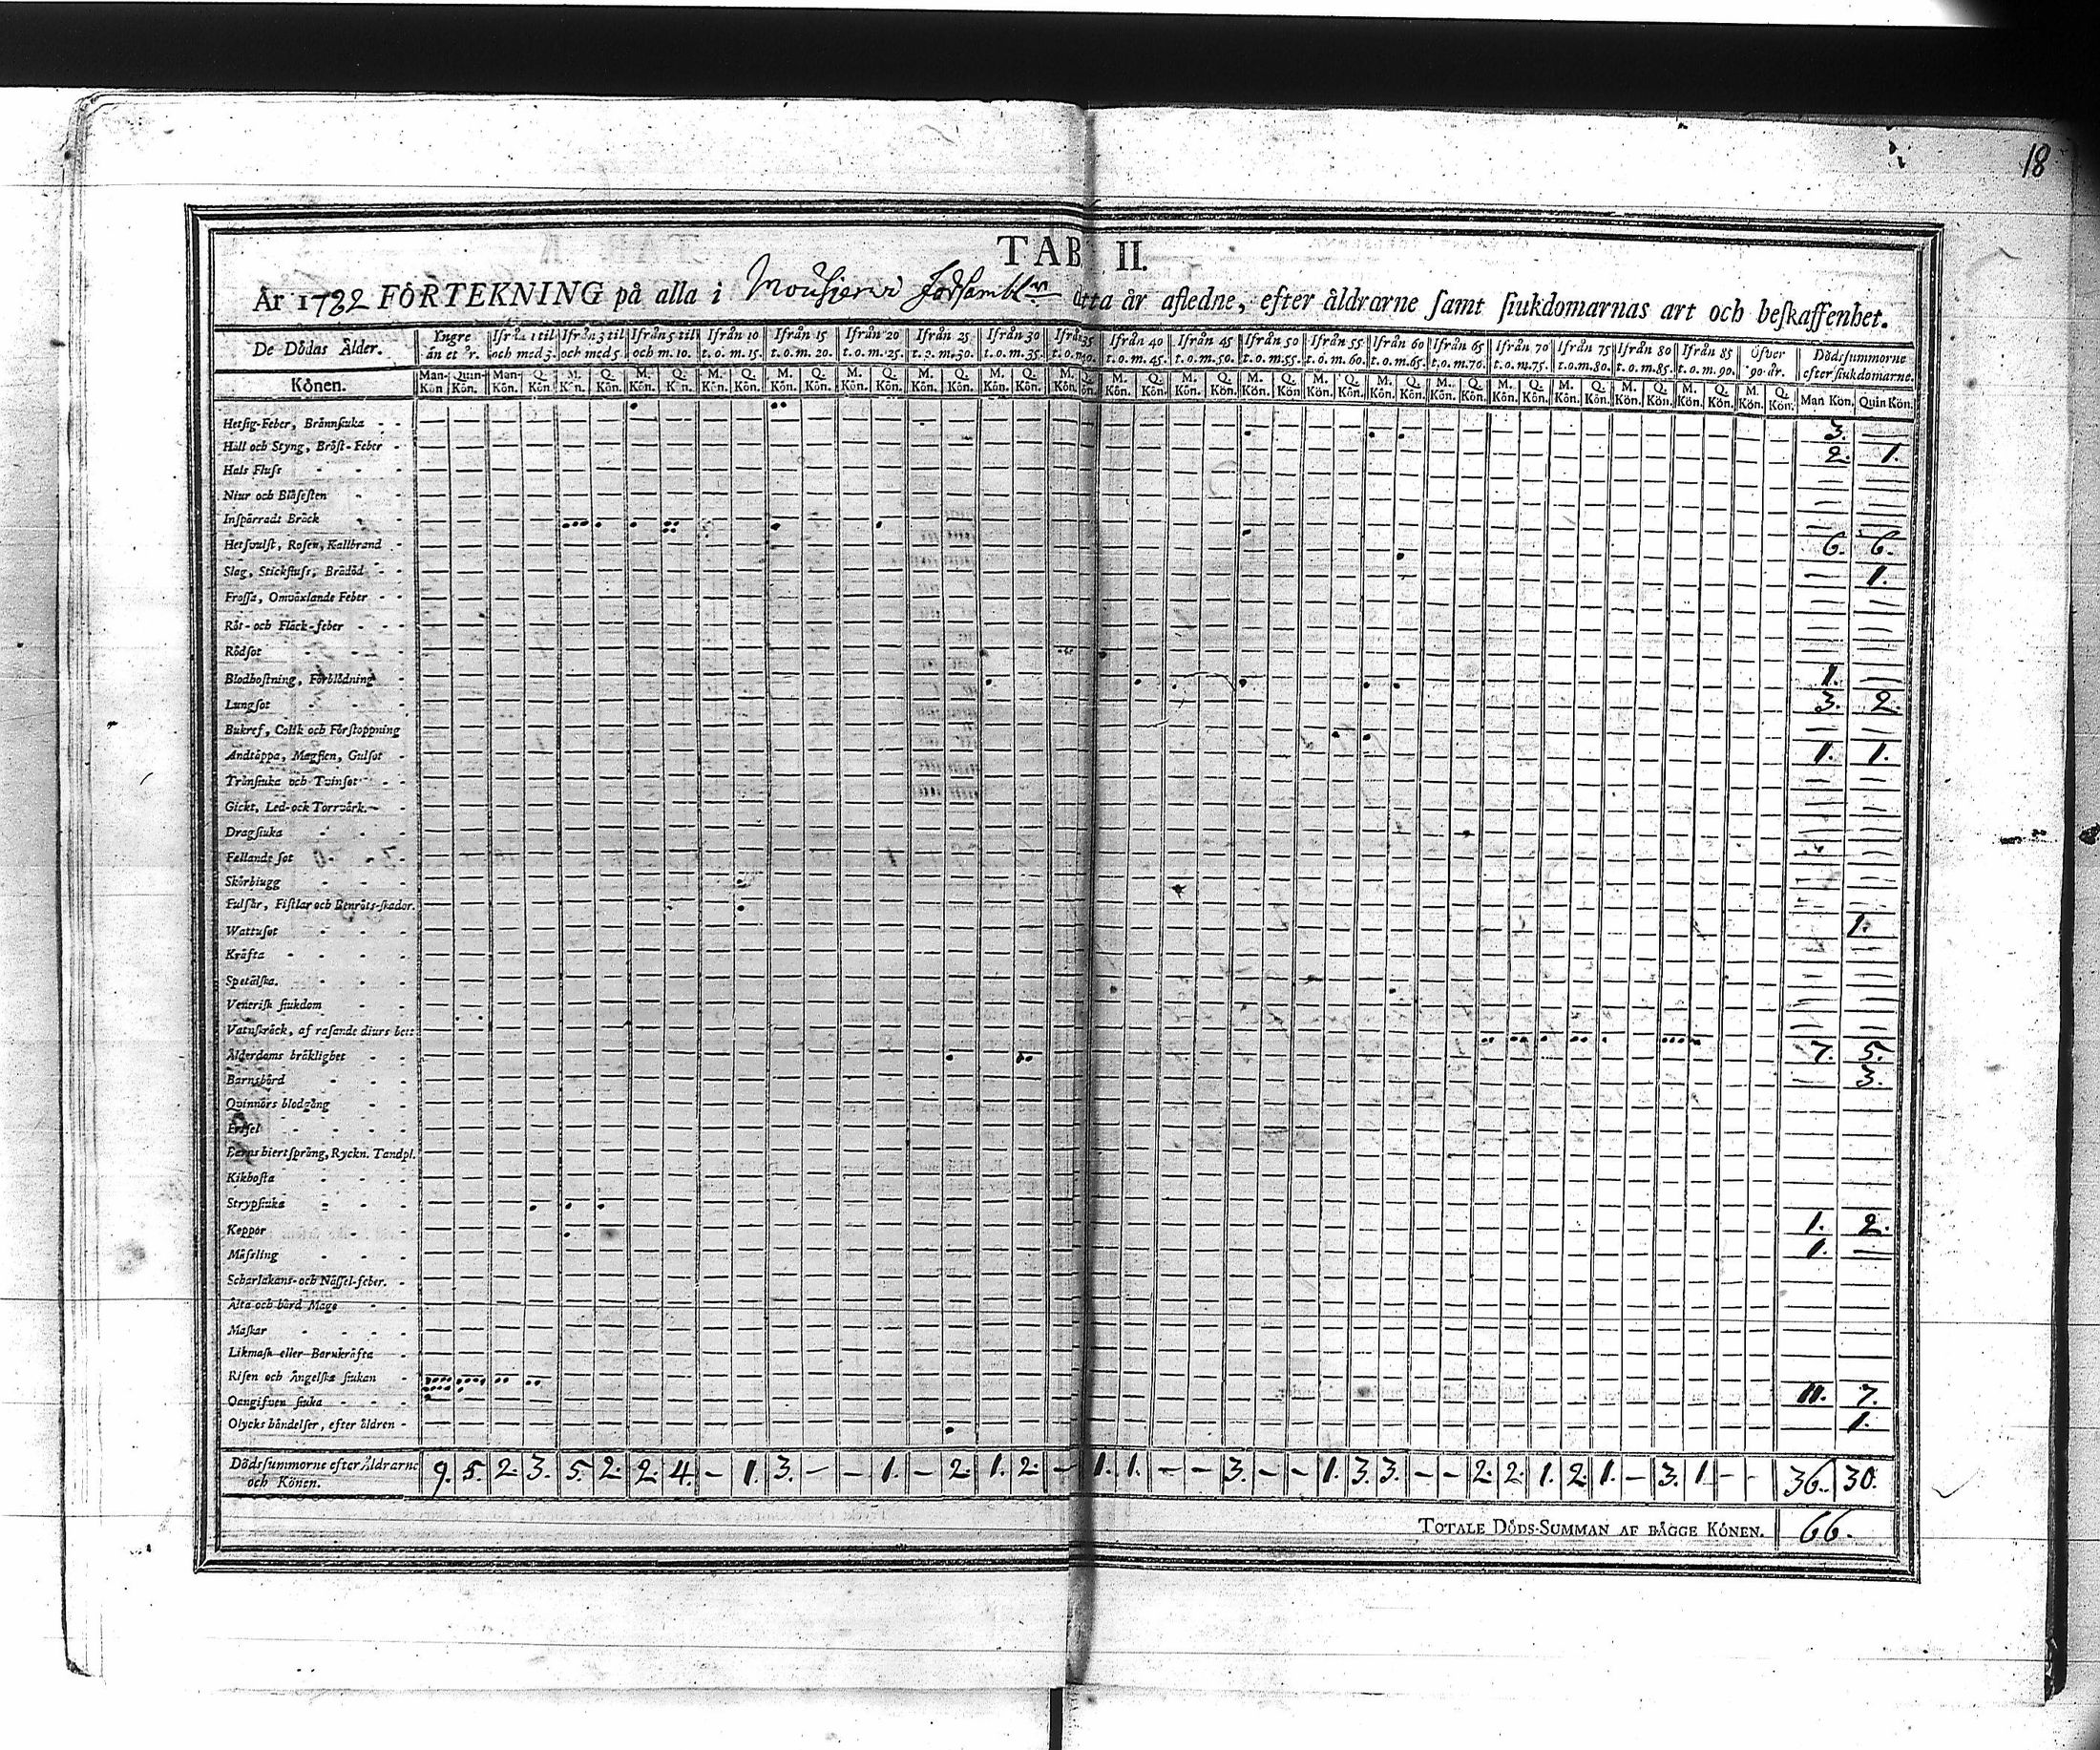 18
TAB II.
År 1782 FÖRTEKNING på alla i Försambl:n detta år afledne, efter åldrarne samt siukdomarnas art och beskaffenhet.
De Dödas Ålder. Yngre än et år. Ifrån 1 til och med 3. Ifrån 3 til och med 5. Ifrån 5 til och m. 10. Ifrån 10 t. o. m. 15. Ifrån 15 t. o. m. 20. Ifrån 20 t. o. m. 25. Ifrån 25 t. o. m. 30. Ifrån 30 t. o. m. 35. Ifrån 35 t. o. m. 40. Ifrån 40 t. o. m. 45. Ifrån 45 t. o. m. 50. Ifrån 50 t. o. m. 55. Ifrån 55 t. o. m. 60. Ifrån 60 t. o. m. 65. Ifrån 65 t. o. m. 70. Ifrån 70 t. o. m. 75. Ifrån 75 t. o. m. 80. Ifrån 80 t. o. m. 85. Ifrån 85 t. o. m. 90. Öfver 90 år. Dödssummorne efter siukdomarne.
Könen. Man-Kön Quin-Kön. Man-Kön Q. Kön M. Kön. Q. Kön. M. Kön. Q. Kön. M. Kön. Q. Kön. M. Kön. Q. Kön. M. Kön. Q. Kön. M. Kön. Q. Kön. M. Kön. Q. Kön. M. Kön. Q. Kön. M. Kön. Q. Kön. M. Kön. Q. Kön. M. Kön. Q. Kön M. Kön. Q. Kön. M. Kön. Q. Kön. M. Kön. Q. Kön. M. Kön. Q. Kön. M. Kön. Q. Kön. M. Kön. Q. Kön. M. Kön. Q. Kön. M. Kön. Q. Kön. Man Kön. Quin Kön.
Hetsig-Feber, Brännsiuka - - 3. —
Håll och Styng, Bröst-Feber - 2. 1.
Hals Fluss
Niur och Blåsesten
Inspärradt Bråck
Hetsvulst, Rosen, Kallbrand - 6. 6.
Slag, Stickfluss, Brådöd - - 1.
Frossa, Omväxlande Feber - -
Röt- och Fläck-feber
Rödsot
Blodhostning, Förblödning 1.
Lungsot 3. 2.
Bukref, Colik och Förstoppning
Andtäppa, Magsien, Gulsot 1. 1.
Trånsiuka och Tvinsot
Gickt, Led- ock Torrvärk.
Dragsiuka
Fallande sot
Skörbiugg
Fulsår, Fistlar och Benröts-skador.
Wattusot 1.
Kräfta
Spetälska.
Venerisk siukdom
Vatnskräck, af rasande diurs bett
Ålderdoms bräklighet 7. 5.
Barnsbörd 3.
Qvinnors blodgång
Frisel
Barns hiertsprång, Ryckn. Tandpl.
Kikhosta
Strypsiuka
Koppor 1. 2.
Mässling 1. —
Scharlakans- och Nässel-feber.
Älta och hård Mage
Maskar
Likmask eller Barnkräfta
Risen och Ängelska siukan
Oangifven siuka 11. 7.
Olycks händelser, efter älldren 1.
Dödssummorne efter Åldrarne och Könen. 9. 5. 2. 3. 5. 2. 2. 4. – 1. 3. – – 1. – 2. 1. 2. – 1. 1. – – 3. – – 1. 3. 3. – – 2. 2. 1. 2. 1. – 3. 1. – – 36. 30.
TOTALE DÖDS-SUMMAN AF BÅGGE KÖNEN. 66.